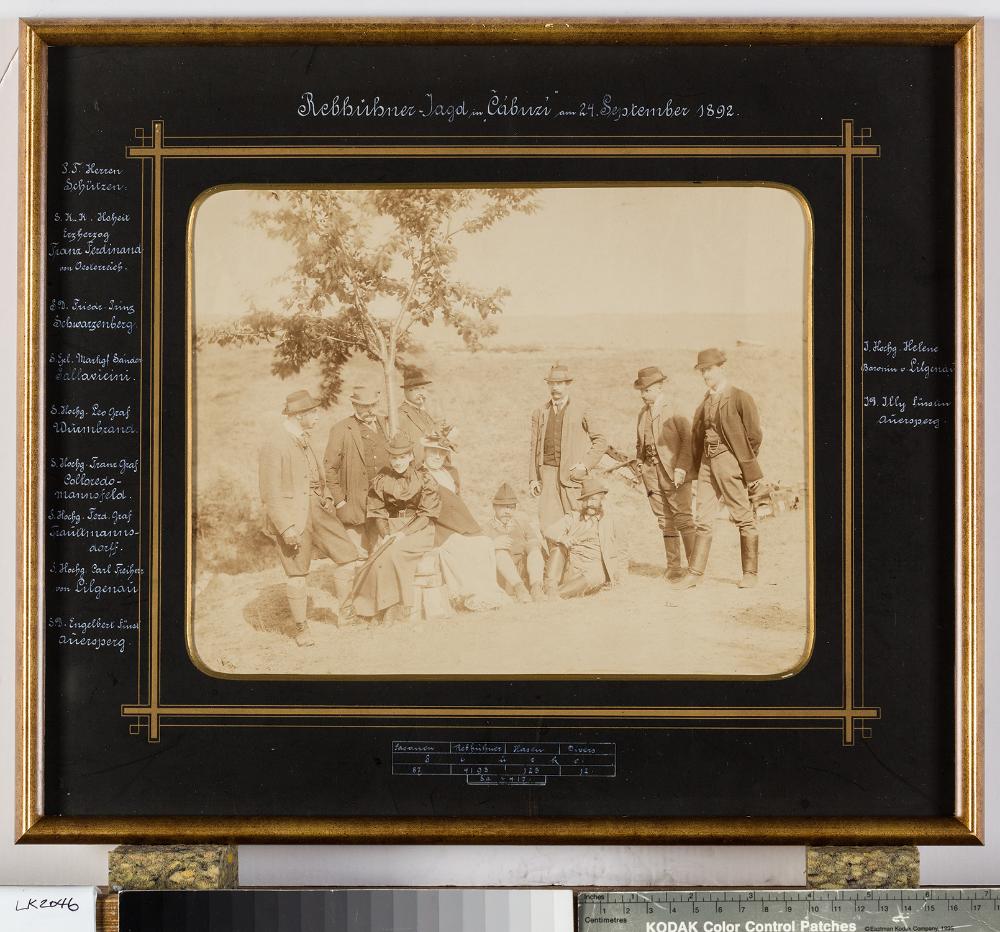 Rebhühner-Jagd in "Čabuzi" am 24. September 1892.
Herren
Schützen:
S. K. K. Hoheit
Erzherzog
Franz Ferdinand
von Oesterreich.
S.D. Friedr. Prinz
Schwarzenberg.
S. Exl. Markgf Sándor
Pallavicini.
S. Hochg. Leo Graf
Wurmbrand.
S. Hochg. Franz Graf
Colloredo-
mannsfeld.
S. Hochg. Ferd. Graf
Trauttmanns-
dorff.
S. Hochg. Carl Freiherr
von Lilgenau
S.D. Engelbert Fürst
Auersperg.
J. Hochg. Helene
Baronin v. Lilgenau
J.D. Illy Fürstin
Auersperg.
Fasanen Rebhühner Hasen Divers
S t ü c k e:
87 123 12
LK2046
Inches 1 2 3 4 5 6 7
Centimetres 1 2 3 4 5 6 7 8 9 10 11 12 13 14 15 16 17
KODAK Color Control Patches ©Eastman Kodak Company, 1995